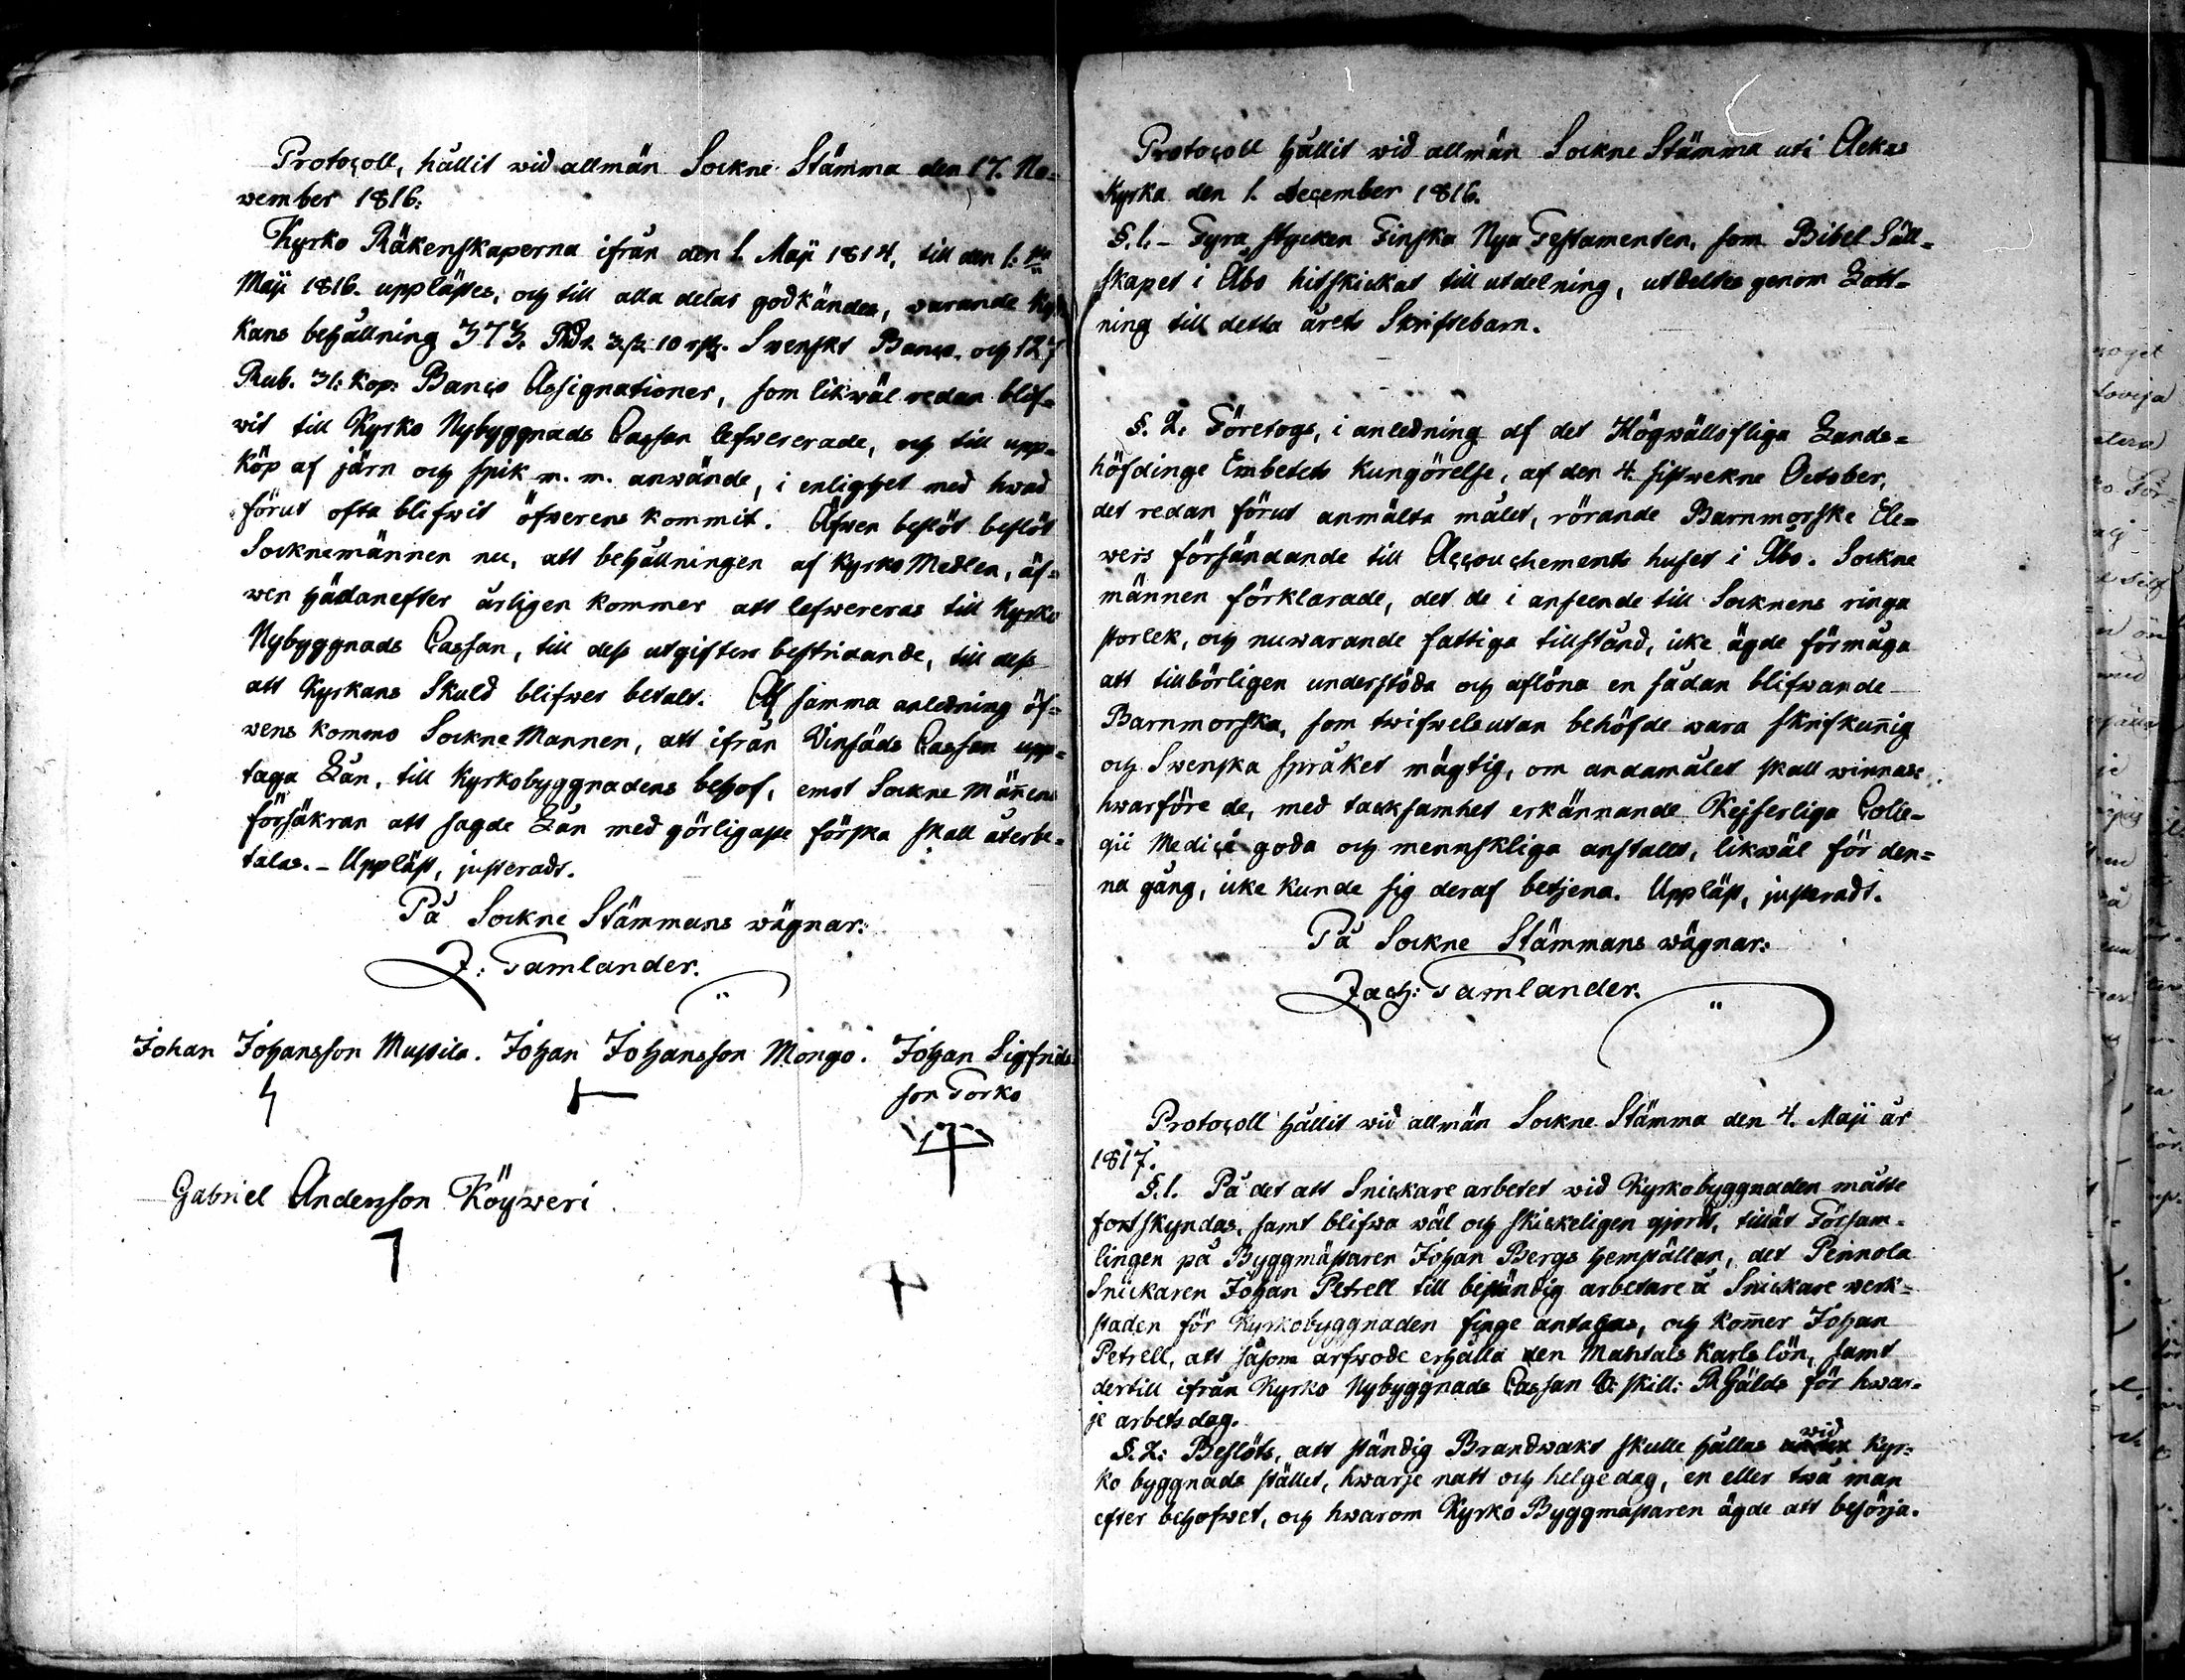 Protocoll, hållit wid allmän Sockne Stämma den 17. No-
wember 1816:
Kyrko Räkenskaperna ifrån den 1. Maji 1814, till den 1:
Maji 1816. upplästes, och till alla delar godkändes, warande Kyr
kans behållning 373. Rdr 3 ß 10 rst. Svenskt Banco, och 127
Rub. 31: kop: Banco Assignationer, som likwäl redan blif-
wit till Kyrko Nybyggnads Cassan lefwererade, och till upp-
köp af järn och spik m. m. anwände, i enlighet med hwad
förut ofta blifwit öfwerens kommit. Äfwen beslöt beslöt
Socknemännen nu, att behållningen af Kyrko Medlen, äf-
wen hädanefter årligen kommer att lefwereras till Kyrko
Nybyggnads Cassan, till dess utgifters bestridande, till dess
att Kyrkans Skuld blifwer betalt. Af samma anledning öf-
wens kommo Sockne Mannen, att ifrån Winsäds Cassan upp-
taga Lån, till Kyrkobyggnadens behof, emot Sockne Mäñens
försäkran att sagde Lån med görligaste första skall återbe-
talas. - Uppläst, justeradt.
På Sockne Stämmans wägnar:
Z: Tamlander.
Johan Johansson Mussila. Johan Johansson Mongo. Johan Sigfrids-
son Torko
Gabriel Andersson Köyweri
Protocoll hållit wid allmän Sockne Stämma uti Ackas
Kyrka den 1. december 1816.
§. 1. - Fyra stycken Finska Nya Testamenten, som Bibel Säll-
skapet i Åbo hitskickat till utdelning, utdeltes genom Lott-
ning till detta årets Skriftebarn.
§. 2. Företogs, i anledning af det Högwällofliga Lands-
höfdinge Embetets Kungörelse, af den 4. sistwekne October,
det redan förut anmälta målet, rörande Barnmorske Ele-
wers försändande till Accouchements huset i Åbo. Sockne
männen förklarade, det de i anseende till Socknens ringa
storlek, och nuwarande fattiga tillstånd, icke ägde förmåga
att tillbörligen understöda och aflöna en sådan blifwande
Barnmorska, som twifwelsutan behöfde wara skrifkuñig
och Swenska språket mägtig, om andamålet skall winnas:
hwarföre de, med tacksamhet erkännande Kejserliga Colle-
gii Medici goda och mennskliga anstallt, likwäl för den-
na gång, icke kunde sig deraf betjena. Uppläst, justeradt.
På Sockne Stämmans wägnar:
Zach: Tamlander.
Protocoll hållit wid allmän Sockne Stämma den 4. Maji år
1817.
§. 1. På det att Snickare arbetet wid Kyrkobyggnaden måtte
fortskyndas, samt blifwa wäl och skickeligen gjordt, tillät Försam-
lingen på Byggmästaren Johan Bergs hemställan, det Pennola
Snickaren Johan Petrell till beständig arbetare å Snickare werk-
staden för Kyrkobyggnaden finge antagas, och kom̃er Johan
Petrell, att såsom arfwode erhålla den Mantals Karls lön, samt
dertill ifrån Kyrko Nybyggnads Cassan 8: skill: R Gälds för hwar-
je arbetsdag.
§. 2: Beslöts, att ständig Brandwakt skulle hållas wid Kyr-
ko byggnads stället, hwarje natt och helgedag, en eller twå man
efter behofwet, och hwarom Kyrko Byggmästaren ägde att besörja.